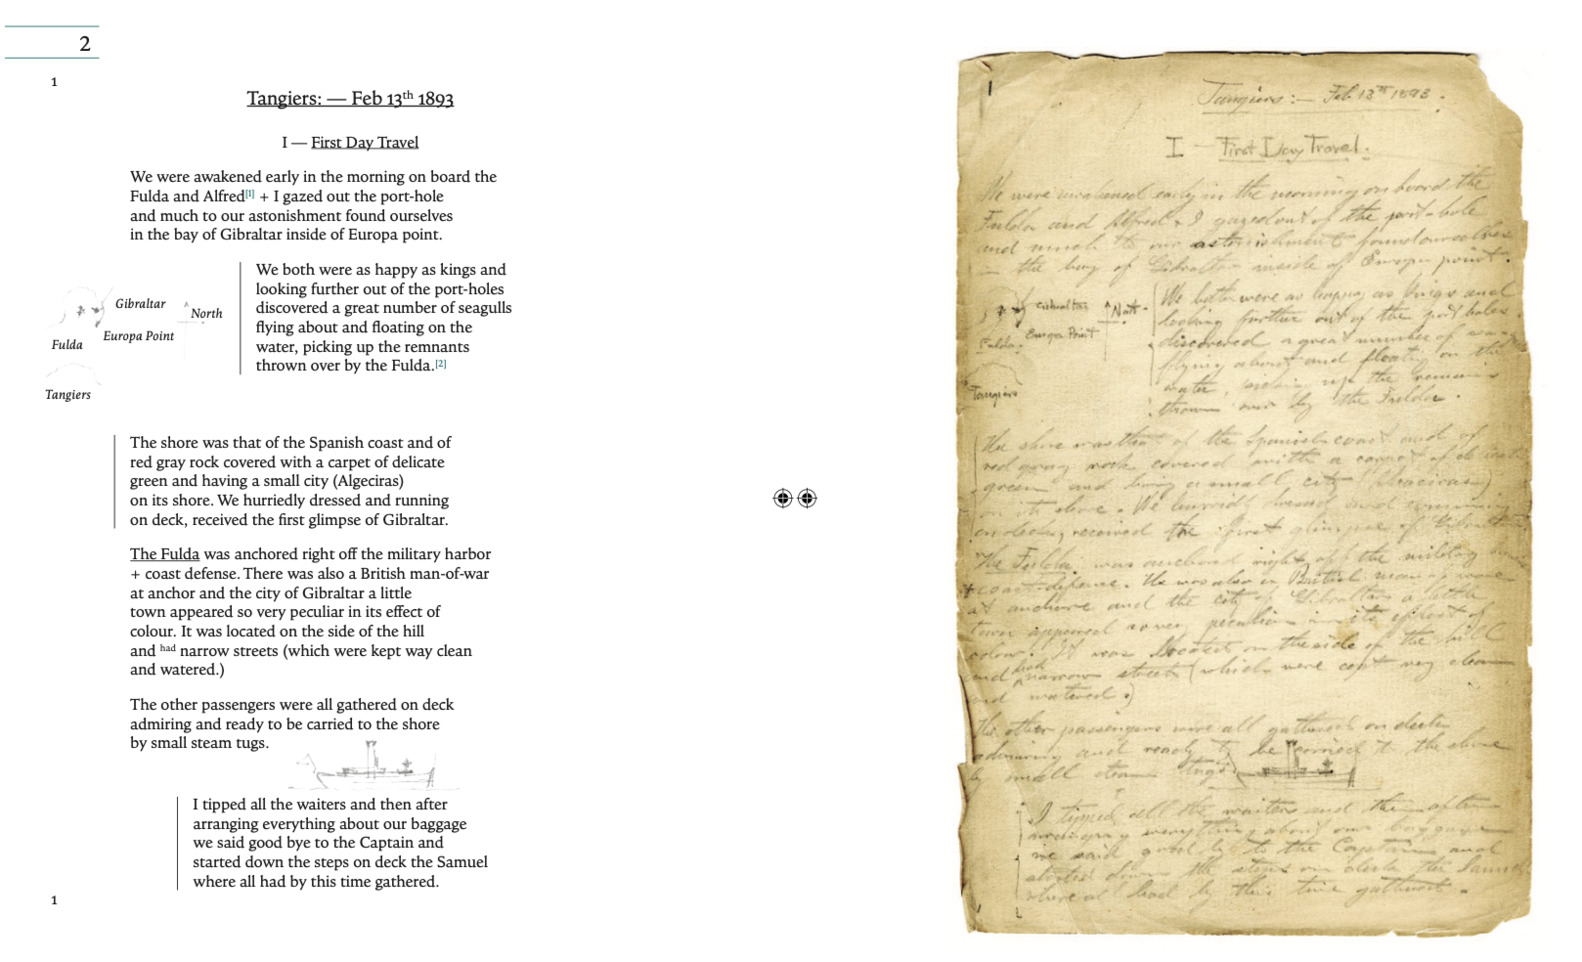 2
1
Tangiers: — Feb 13th 1893
I — First Day Travel
We were awakened early in the morning on board the
Fulda and Alfred[1] + I gazed out the port-hole
and much to our astonishment found ourselves
in the bay of Gibraltar inside of Europa point.
We both were as happy as kings and
looking further out of the port-holes
discovered a great number of seagulls
flying about and floating on the
water, picking up the remnants
thrown over by the Fulda.[2]
Gibraltar
North
Europa Point
Fulda
Tangiers
The shore was that of the Spanish coast and of
red gray rock covered with a carpet of delicate
green and having a small city (Algeciras)
on its shore. We hurriedly dressed and running
on deck, received the first glimpse of Gibraltar.
The Fulda was anchored right off the military harbor
+ coast defense. There was also a British man-of-war
at anchor and the city of Gibraltar a little
town appeared so very peculiar in its effect of
colour. It was located on the side of the hill
and had narrow streets (which were kept way clean
and watered.)
The other passengers were all gathered on deck
admiring and ready to be carried to the shore
by small steam tugs.
I tipped all the waiters and then after
arranging everything about our baggage
we said good bye to the Captain and
started down the steps on deck the Samuel
where all had by this time gathered.
1
1
Tangiers:— Feb 13th 1893.
I — First Day Travel.
We were awakened early in the morning on board the
Fulda and Alfred + I gazed out of the port-hole
and much to our astonishment found ourselves
in the bay of Gibraltar inside of Europa point.
Gibraltar
North
Europa Point
Fulda
Tangiers
We both were as happy as kings and
looking further out of the port holes
discovered a great number of
flying about and floating on the
water, picking up the remnants
thrown over by the Fulda.
The shore was that of the Spanish coast and of
red gray rock covered with a carpet of delicate
green and having a small city (Algeciras)
on its shore. We hurriedly dressed and running
on deck, received the first glimpse of Gibraltar
The Fulda was anchored right off the military
+ coast defense. was also a British man of war
at anchore and the city of Gibraltar a little
town appeared so very peculiar in its effect of
colour. It was located on the side of the hill
and had narrow streets (which were kept very clean
and watered.)
The other passengers were all gathered on deck
admiring and ready to be carried to the shore
by small steam tugs.
I tipped all the waiters and then after
arranging everything about our baggage
we said good by to the Captain and
started down the steps on deck the Samuel
where all had by this time gathered.